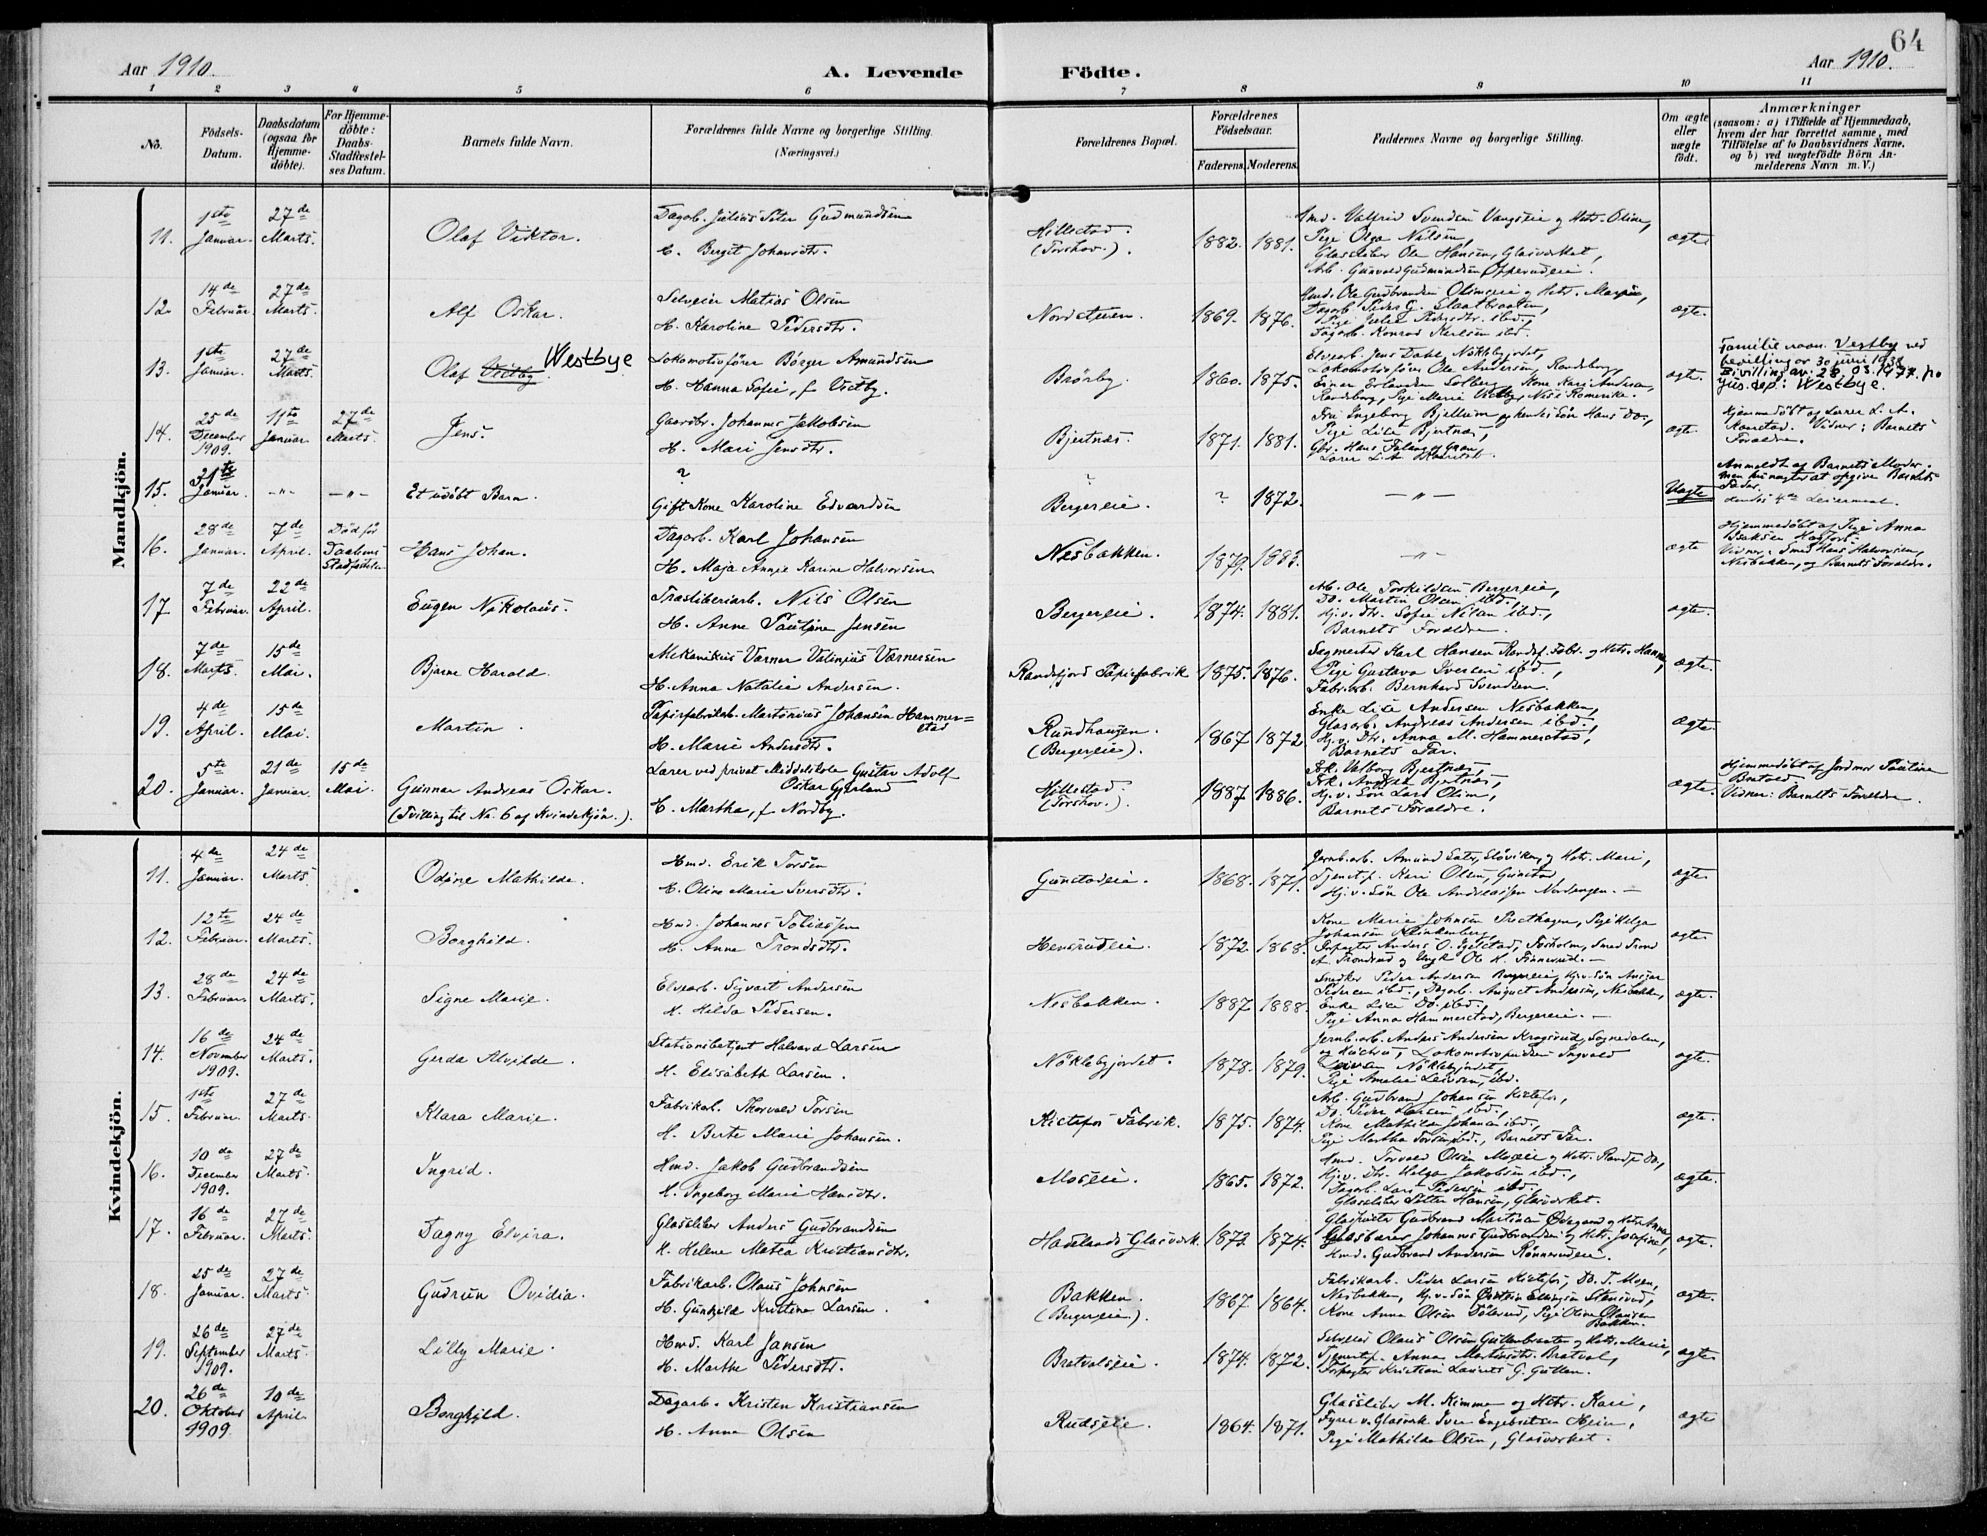 64
Aar 1910.
A. Levende Födte.
Aar 1910.
1 2 3 4 5 6 7 8 9 10 11
No.
Födsels-Datum.
Daabsdatum (ogsaa for Hjemme-döbte).
For Hjemme-döbte: Daabs-Stadfæstel-ses Datum.
Barnets fulde Navn.
Forældrenes fulde Navne og borgerlige Stilling.
(Næringsvei.)
Forældrenes Bopæl.
Forældrenes Födselsaar.
Faderens. Moderens.
Faddernes Navne og borgerlige Stilling.
Om ægte eller uægte födt.
Anmærkninger
(saasom: a) i Tilfælde af Hjemmedaab, hvem der har forrettet samme, med Tilföielse af to Daabsvidners Navne, og b) ved uægtefödte Börn An-melderens Navn m. V.)
Mandkjön.
11. 1ste Januar. 27de Marts. Olaf Viktor.
Dagarb. Julius Peter Gudmundsen
H. Bergit Johansdtr.
Hillestad. (Torshov.).
1882. 1881.
Pige Olga Nilsen,
Glassliber Ole Hansen, Glasværket,
Arb. Gunvald Gudmundsen
ægte
12. 14de Februar. 27de Marts. Alf Oskar.
Selveier Matias Olsen
H. Karoline Pedersdtr.
1869. 1876.
Dagarb. Konrad Karlsen ibd.
ægte.
13. 1ste Januar. 27de Marts. Olaf Vestby. Westbye
Lokomotivförer Börger Amundsen
H. Hanna Sofie, f. Vestby.
Brörby.
1860. 1875.
Elvearb. Jens Dahl, Nöklebyjordet,
Lokomotivförer Ole Andersen, Randsborg,
Einar Erlandsen Solberg, Kone Kari Andersen,
Randsborg, Pige Marie Vestby, Nes Romerike.
ægte.
Familienavn Vestby ved
bevilling av 30 juni 193
Bevilling av. 28. 03. 1977. fra
jus. dep: Westbye.
14. 25de December 1909. 11te Januar. 27de Marts. Jens.
Gaardbr. Johannes Jakobsen
H. Mari Jensdtr.
Bjertnæs.
1871. 1881.
Fru Ingeborg Bjellum og hendes Sön Hans Do.,
Pige Lise Bjertnæs,
ægte.
Hjemmedöbt af Lærer L. A.
Vidner: Barnets
Forældre.
15. 31te Januar. -"- -"- Et udöbt Barn.
?
Gift Kone Karoline Edvardsen
Bergereie.
? 1872.
-"-
Uægte
Anmeldt af Barnets Moder.
men hun nægter at opgive Barnets
Fader.
Hendes 4de Leiermaal.
16. 28de Januar. 7de April. Död för Daabens Stadfæstelse Hans Johan.
Dagarb. Karl Johansen
H. Maja Annie Karine Halvorsen
Nesbakken.
1879. 1883.
-"-
ægte
Hjemmedöbt af Pige Anna
Vidner: Smed Hans Halvorsen,
Nesbakken, og Barnets Forældre.
17 7de Februar. 22de April. Eugen Nikolaus.
Træsliberiarb. Nils Olsen
H. Anne Pauline Jansen
Bergereie.
1874. 1881.
Arb. Ole Torkildsen Bergereie,
Do. Martin Olsen ibd.,
Hj.v. dtr. Sofie Nilsen ibd.,
Barnets Forældre.
ægte.
18. 7de Marts. 15de Mai. Bjarne Harald.
Mekanikus Værner Valinius Værnersen
H. Anna Natalia Andersen.
Randsfjord Papirfabrik
1875. 1876.
Sagmester Karl Hansen Randsf. Fabr. og Hstr. Hanna,
Pige Gustava Iversen ibd.,
Fabr.arb. Bernhard Svendsen.
ægte.
19. 4de April. 15de Mai. Martin.
Papirfabrikab. Martinius Johansen Hammer=
stad
H. Marie Andersdtr.
Rundhaugen. (Bergereie).
1867 1872
Enke Lise Andersen Nesbakken,
Glasarb. Andreas Andersen ibd.,
Hj.v. Dtr. Anna M. Hammerstad,
Barnets Far.
ægte.
20. 5te Januar. 21de Januar. 15de Mai. Gunnar Andreas Oskar.
(Tvilling til No. 6 af Kvindekjön.).
Lærer ved privat Middelskole Gustav Adolf
Oskar Gjerland
H. Martha, f. Nordby.
Hillestad. (Torshov.).
1887 1886.
Frk. Valborg Bjertnæs,
Hj.v. Sön Lars Olsen,
Barnets Forældre.
ægte.
Hjemmedöbt af Jordmor Pauline
Bratvold.
Vidner: Barnets Forældre.
Kvindekjön.
11. 4de Januar. 24de Marts. Odine Mathilde.
Hmd. Erik Torsen
H. Oline Marie Iversdtr.
Gunstadeie.
1868. 1871.
Tjenestp. Kari Olsen, Gunstad,
Hj.v. Sön Ole Andreassen Nordengen.
ægte.
12. 12te Februar. 24de Marts. Borghild.
Hmd. Johannes Tobiassen
H. Anne Trondsdtr.
Hensrudeie.
1872. 1868.
Kone Marie Johnsen Presthagen, Pige Helga
Johansen Klinkenberg,
ægte
13. 28de Februar. 24de Marts. Signe Marie.
Elvearb. Sigvart Andersen
H. Hilda Pedersen.
Nesbakken.
1887 1888.
Snedker Peder Andersen Bergereie, Hj.v. Sön Ansgar
Pedersen ibd., Dagarb. August Andersen, Nesbakken,
Enke Lise Do. ibd.,
Pige Anna Hammerstad, Bergereie.
ægte.
14. 16de November 1909. 24de Marts. Gerda Alvilde.
Stationsbetjent Halvard Larsen
H. Elisabeth Larsen.
Nöklebyjordet.
1878. 1879.
Jernb.arb. Anders Andersen Kragsrud, Sognedalen,
og Hustru, Lokomotivpudser Ingvald
Iversen Nöklebyjordet,
Pige Amalie Iversen, ibd.
ægte.
15. 1ste Februar. 27de Marts. Klara Marie.
Fabrikarb. Thorvald Torsen
H. Berte Marie Johansen.
Kistefos Fabrik.
1875. 1874.
Arb. Gudbrand Johansen Kistefos,
Do. Peder Larsen ibd.,
Kone Mathilde Johansen ibd.,
Pige Martha Torsen ibd., Barnets Far.
ægte
16. 10de December 1909. 27de Marts. Ingrid.
Hmd. Jakob Gudbrandsen
H. Ingeborg Marie Hansdtr.
Moseie.
1865. 1872.
Hmd. Torvald Olsen Moseie og Hstr. Randi Do,
Hj.v. Dtr. Helga Jakobsen ibd.,
Dagarb. Lars Pedersen ibd.,
Glassliber Petter Hansen, Glasværket.
ægte.
17. 16de Februar. 27de Marts. Dagny Elvira.
Glassliber Anders Gudbrandsen
H. Helene Matea Kristiansdtr.
Hadelands Glasværk.
1873 1874.
Glaspuster Gudbrand Martinsen Ödegaard og Hstr. Anna,
Glasbærer Johannes Gudbrandsen og Hstr. Josefine,
Hmd. Gudbrand Andersen Rönnerudeie.
ægte.
18. 25de Januar. 27de Marts. Gudrun Ovidia.
Fabrikarb. Olaus Johnsen
H. Gunhild Kristine Larsen.
Bakken. (Bergereie.)
1867 1864.
Fabrikarb. Peder Larsen Kistefos, Do. T. Moen,
Nesbakken, Hj.v. Sön Ellingsen Stensrud,
Kone Anna Olsen, Pige Oline Olausen
Bakken.
ægte.
19. 26de September 1909. 27de Marts. Lilly Marie.
Hmd. Karl Jansen
H. Marthe Pedersdtr.
Bratvalseie.
1874. 1872.
Selveier Olaus Olsen Guttenbraaten og Hstr. Marie,
Tjenestp. Anna Martinsdtr. Bratval,
Forpagter Kristian Laurits G. Gullen.
ægte
20. 26de Oktober 1909. 10de April. Borghild.
Dagarb. Kristen Kristiansen
H. Anna Olsen
Rudseie.
1864. 1871.
Glassliber M. Kimme og Hstr. Kari,
Fyrer v. Glasværk Iver Engebretsen Heier,
Pige Mathilde Olsen, Glasværket.
ægte